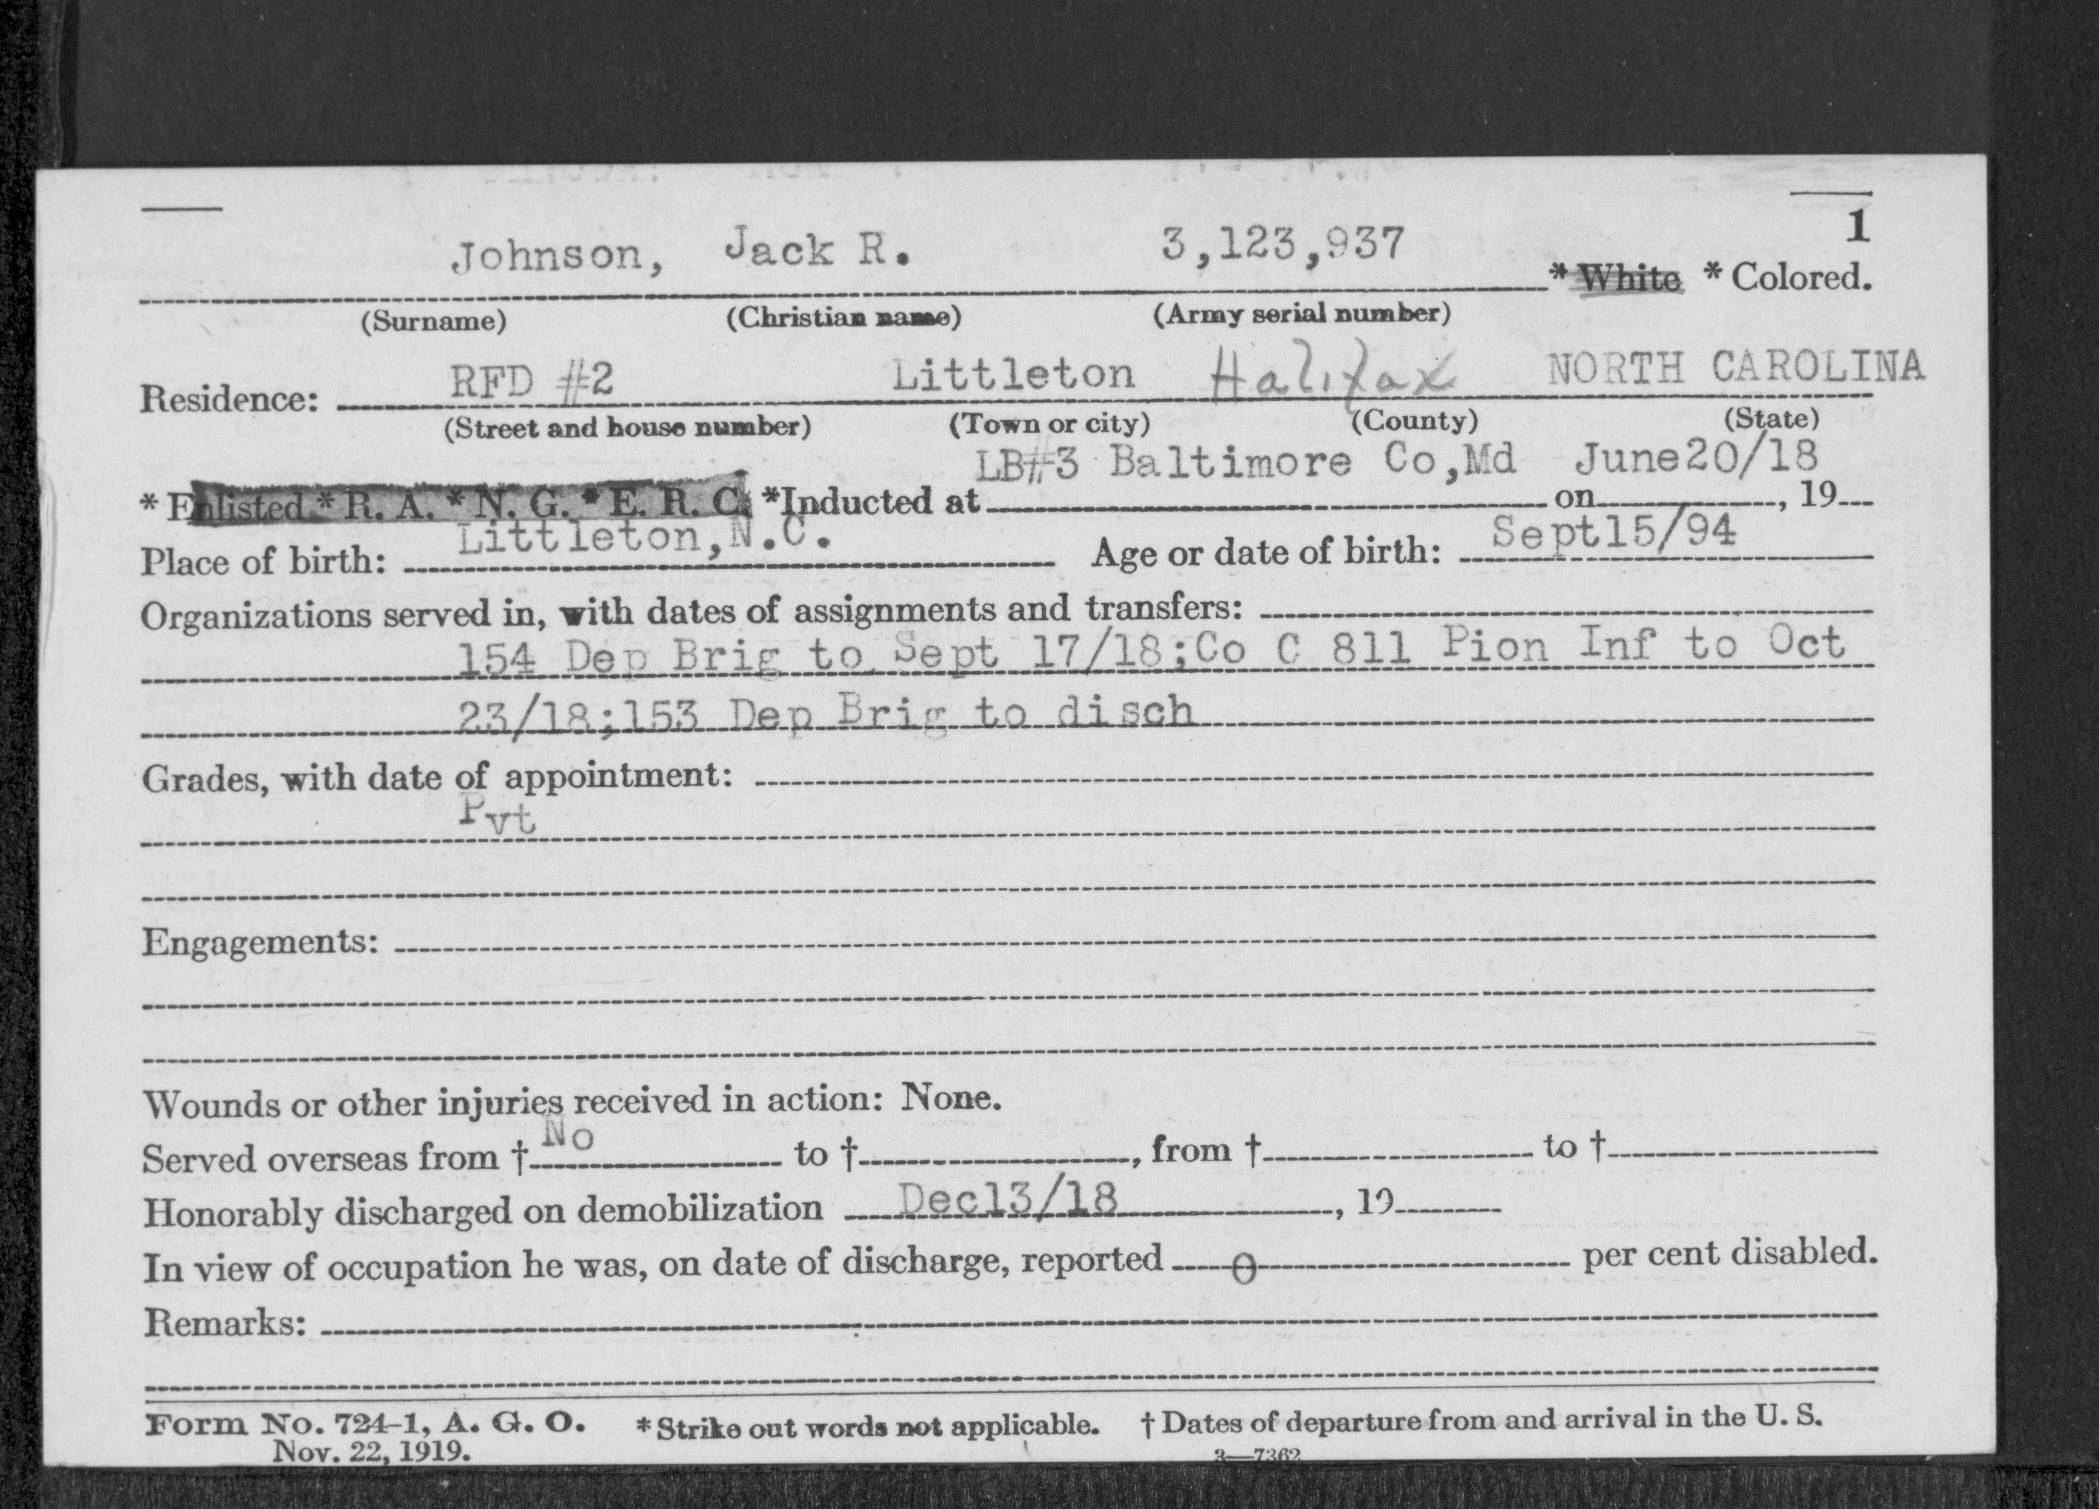 1
Johnson, Jack R. 3,123,937 * White * Colored.
(Surname) (Christian name) (Army serial number)
Residence: RFD #2 Littleton Halifax NORTH CAROLINA
(Street and house number) (Town or city) (County) (State)
* Enlisted * R. A. * N. G. * E. R. C. *Inducted at LB#3 Baltimore Co,Md on June20/18, 19
Place of birth: Littleton,N.C. Age or date of birth: Sept15/94
Organizations served in, with dates of assignments and transfers:
154 Dep Brig to Sept 17/18;Co C 811 Pion Inf to Oct
23/18;153 Dep Brig to disch
Grades, with date of appointment:
Pvt
Engagements:
Wounds or other injuries received in action: None.
Served overseas from † No to †, from † to †
Honorably discharged on demobilization Dec13/18, 19
In view of occupation he was, on date of discharge, reported 0 per cent disabled.
Remarks:
Form No. 724-1, A. G. O. * Strike out words not applicable. † Dates of departure from and arrival in the U. S.
Nov. 22, 1919. 3—7362